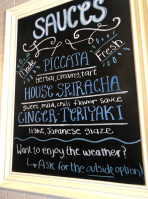 SAUCES
Made Fresh
PICCATA
Herbal, creamy, tart
HOUSE SRIRACHA
Sweet, mild, chili flavor sauce
GINGER TERIYAKI
light, Japanese glaze
Want to enjoy the weather?
Ask for the outside option!